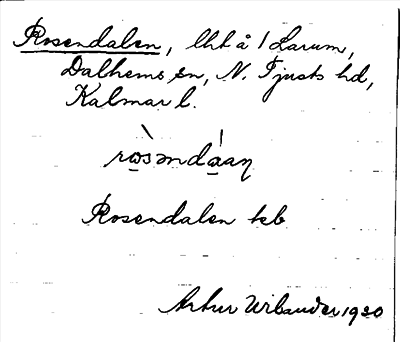 Rosendalen, lht å 1 Larum,
Dalhems sn, N. Tjusts hd,
Kalmar l.
Rosendalen kb
Artur Urbander 1930